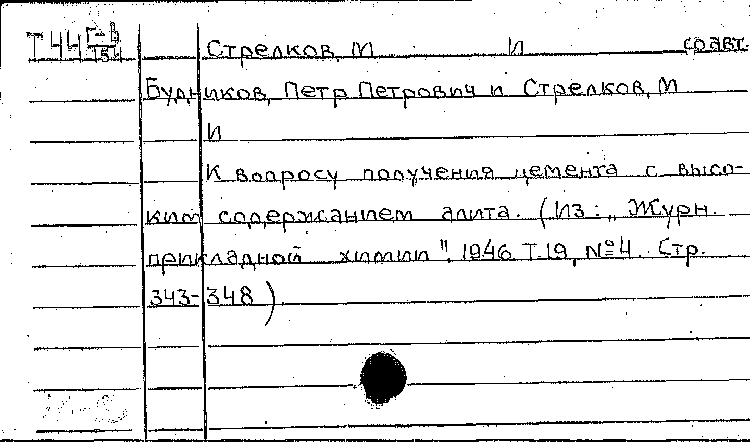 Т44 Г-В Стрелков, М И соавт.
154
Будников, Петр Петрович и Стрелков, М
И
К вопросу получения цемента с высо-
ким содержанием алита. (Из: „Журн.
прикладной химии". 1946. Т.19, №4. Стр.
343-348)